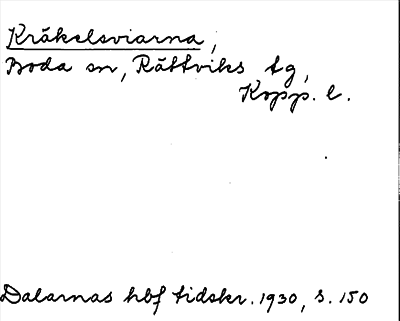 Kräkelsviarna,
Boda sn, Rättviks tg,
Kopp. l.
Dalarnas hbf tidskr. 1930, s. 150